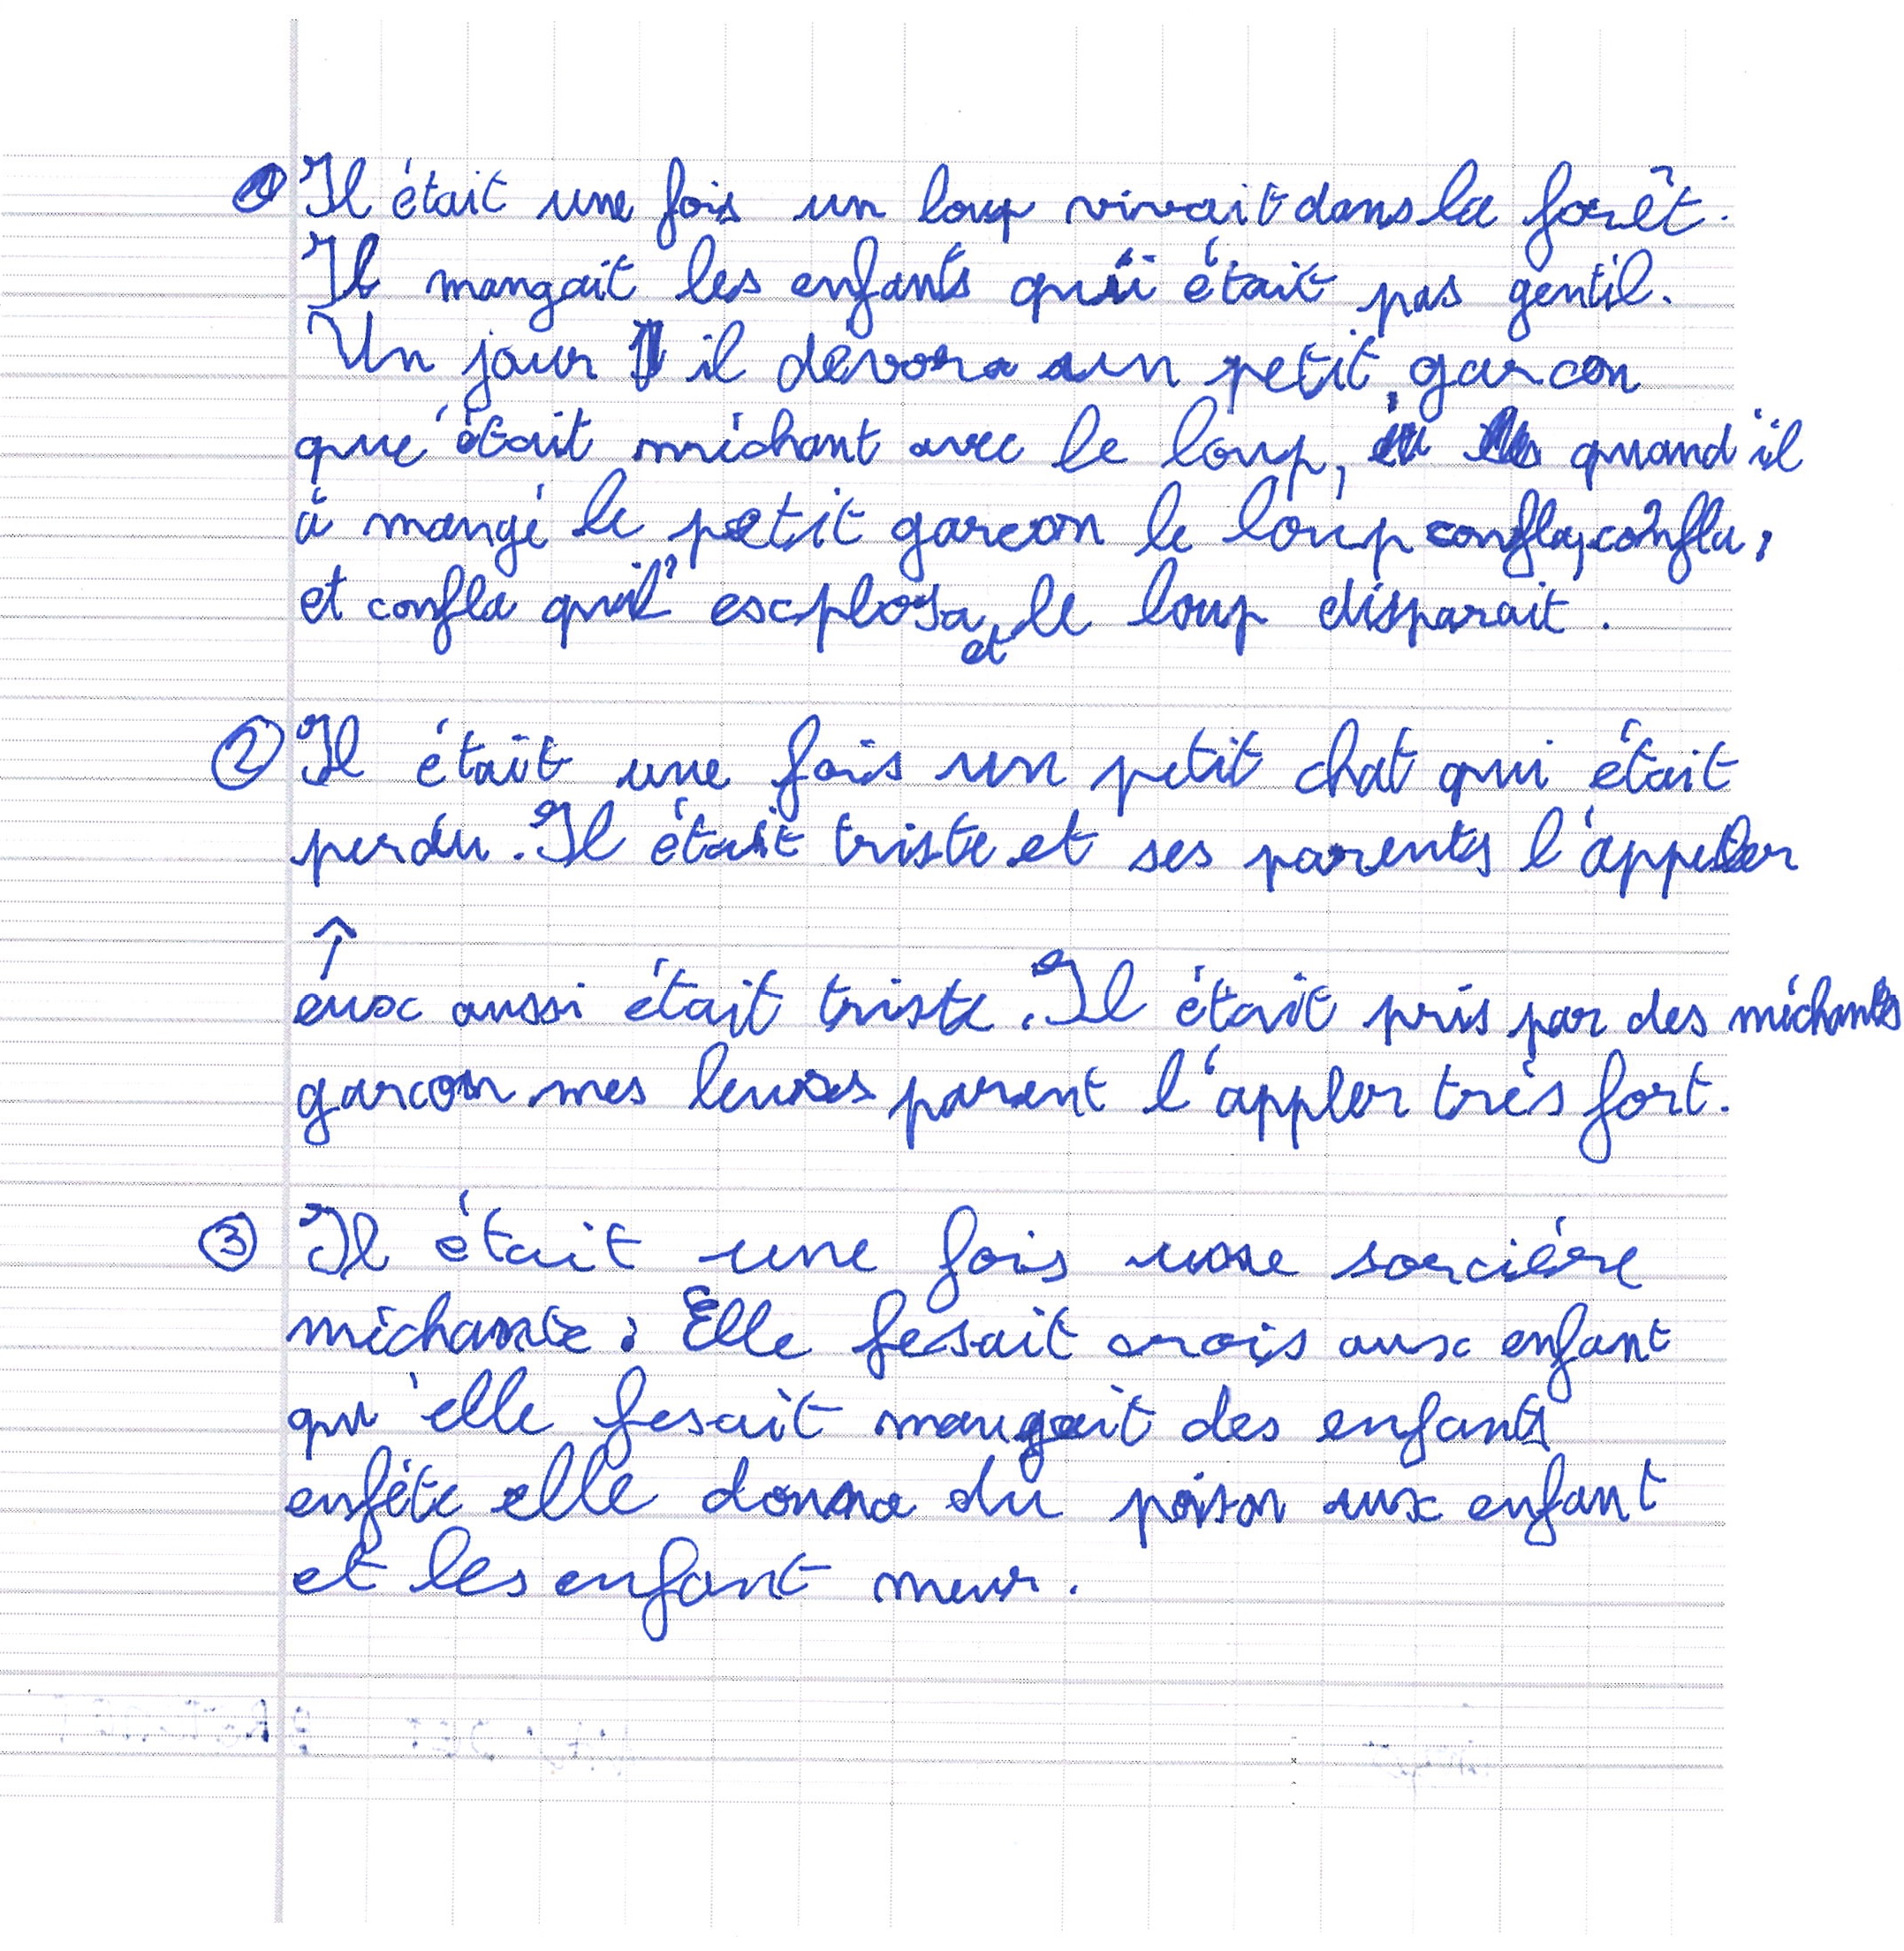 ① Il était une fois un loup vivait dans la forêt.
Il mangait les enfants qui était pas gentil.
Un jour il dévora un petit garcon
que était méchant avec le loup, quand il
à mangé le petit garcon le loup confla, confla,
et confla qu'il' escplosa et le loup disparait.
② Il était une fois un petit chat qui était
perdu. Il était triste et ses parents l'appeler
↑
eux aussi était triste. Il était pris par des méchants
garcon mes leurses parent l'appler très fort.
③ Il était une fois une sorcière
méchante. Elle fesait crois aux enfant
qu'elle fesait mangait des enfants
enfète elle donna du poison aux enfant
et les enfant meur.